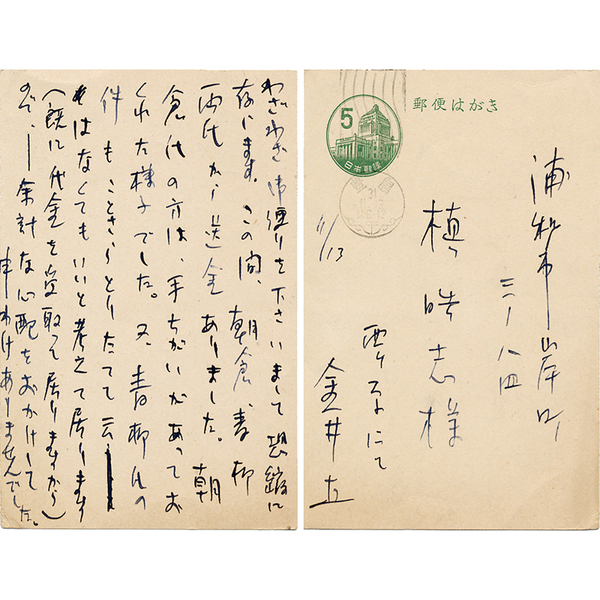 わざわざ御便りを下さいまして恐縮に
存じます。この間、朝倉、青柳
両氏から送金ありました。朝
倉氏の方は、手ちがいがあってお
くれた様子でした。又、青柳氏の
件もことさらとりたてて云
はなくてもいいと考えて居ります
(既に代金を受取って居りますから)
ので、余計な心配をおかけして
申わけありませんでした。
郵便はがき
5
日本郵便
31
浦和市岸町
三ノ八四
槙皓志様
11/13
にて
金井直